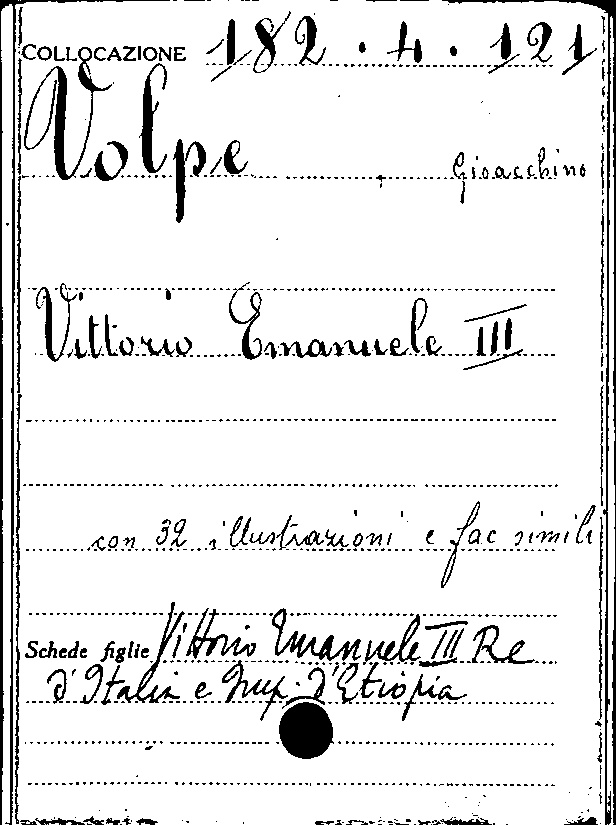 COLLOCAZIONE 182.4.121
Volpe Gioacchino
Vittorio Emanuele III
con 32 illustrazioni e fac simili
Schede figlie Vittorio Emanuele III Re
d'Italia e Imp. d'Etiopia